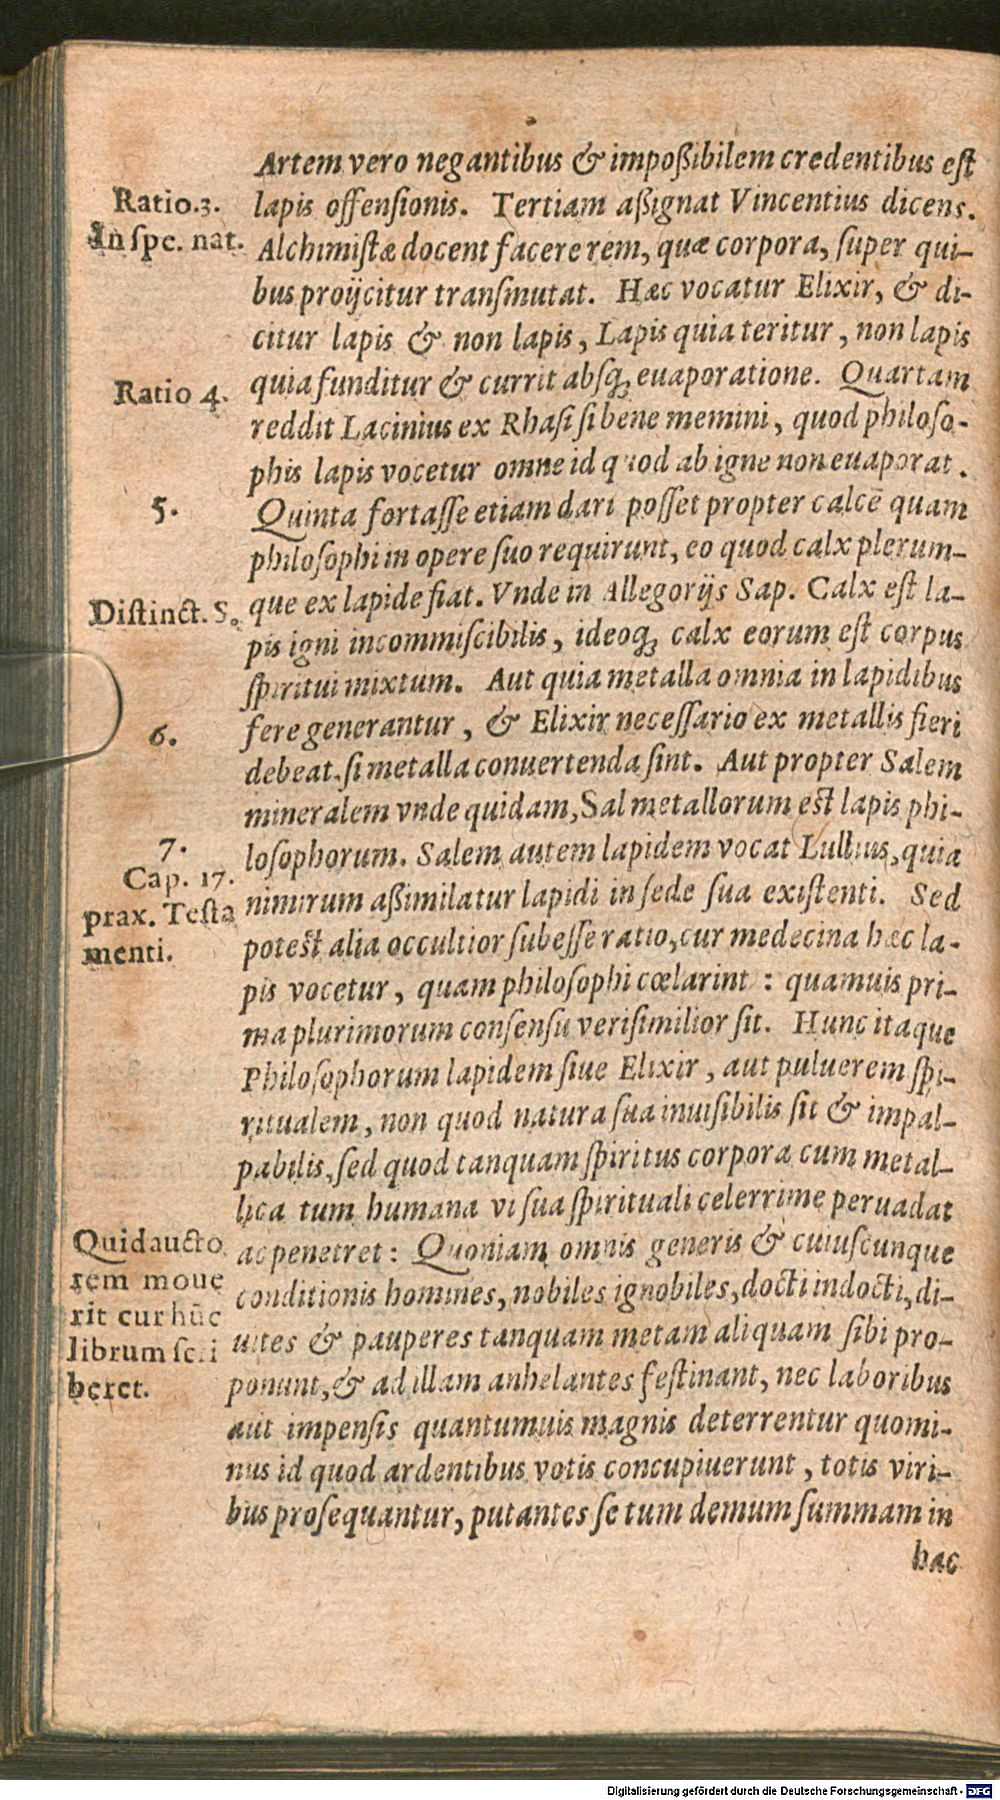 Artem vero negantibus & impoßibilem credentibus eſt
lapis offenſionis. Tertiam aßignat Vincentius dicens.
Alchimiſtæ docent facere rem, quæ corpora, ſuper qui-
bus proijcitur tranſmutat. Hæc vocatur Elixir, & di-
citur lapis & non lapis, Lapis quia teritur, non lapis
quia funditur & currit abſq; euaporatione. Quartam
reddit Lacinius ex Rhaſi ſi bene memini, quod philoſo-
phis lapis vocetur omne id quod ab igne non euaporat.
Quinta fortaſſe etiam dari poſſet propter calcē quam
philoſophi in opere ſuo requirunt, eo quod calx plerum-
que ex lapide fiat. Vnde in Allegorijs Sap. Calx eſt la-
pis igni incommiſcibilis, ideoq; calx eorum eſt corpus
ſpiritui mixtum. Aut quia metalla omnia in lapidibus
fere generantur, & Elixir neceſſario ex metallis fieri
debeat, ſi metalla conuertenda ſint. Aut propter Salem
mineralem vnde quidam, Sal metallorum eſt lapis phi-
loſophorum. Salem autem lapidem vocat Lullius, quia
nimirum aßimilatur lapidi in ſede ſua exiſtenti. Sed
poteſt alia occultior ſubeſſe ratio, cur medecina hæc la-
pis vocetur, quam philoſophi cœlarint : quamuis pri-
ma plurimorum conſenſu veriſimilior ſit. Hunc itaque
Philoſophorum lapidem ſiue Elixir, aut puluerem ſpi-
ritualem, non quod natura ſua inuiſibilis ſit & impal-
pabilis, ſed quod tanquam ſpiritus corpora cum metal-
lica tum humana vi ſua ſpirituali celerrime peruadat
ac penetret : Quoniam omnis generis & cuiuſcunque
conditionis homines, nobiles ignobiles, docti indocti, di-
uites & pauperes tanquam metam aliquam ſibi pro-
ponunt, & ad illam anhelantes feſtinant, nec laboribus
aut impenſis quantumuis magnis deterrentur quomi-
nus id quod ardentibus votis concupiuerunt, totis viri-
bus proſequantur, putantes ſe tum demum ſummam in
hac
Ratio.3.
In ſpe. nat.
Ratio 4.
5.
Diſtinct. S.
6.
7.
Cap. 17.
prax. Teſta
menti.
Quid aucto
rem moue
rit cur hūc
librum ſcri
beret.
Digitalisierung gefördert durch die Deutsche Forschungsgemeinschaft - DFG